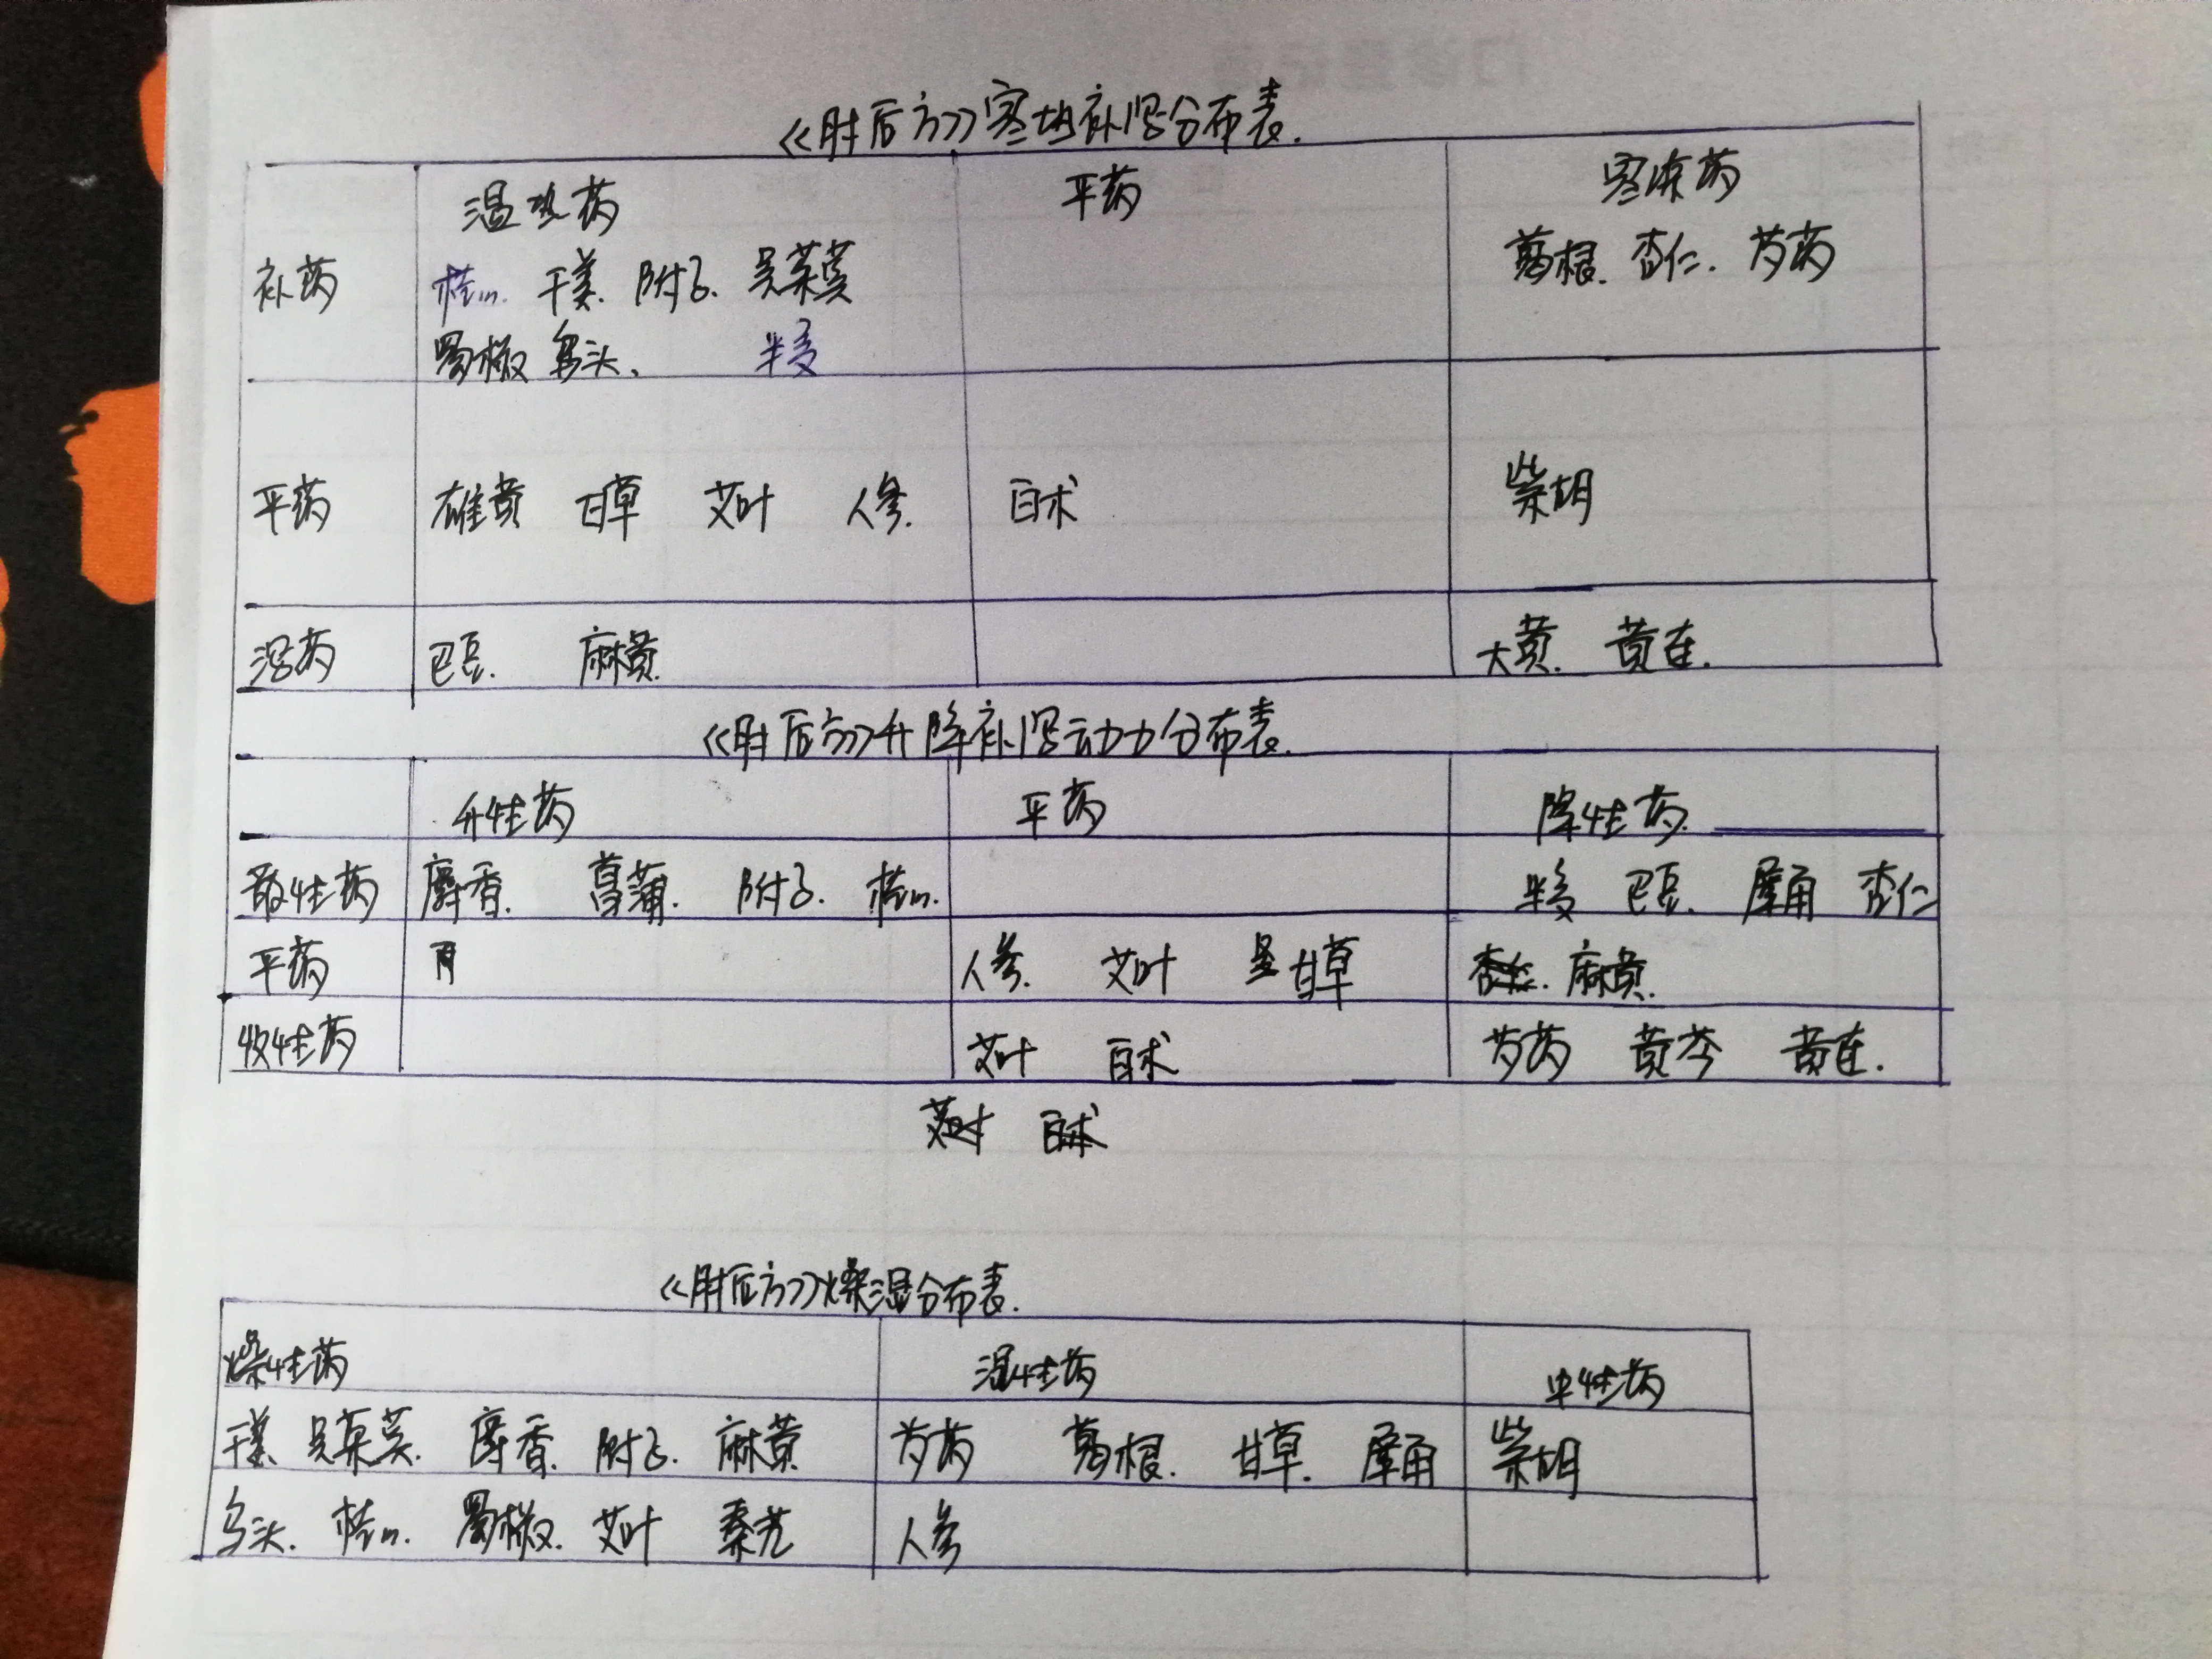 《肘后方》寒热补泻分布表.
温热药 平药 寒凉药
补药 桂心. 干姜. 附子. 吴茱萸 葛根. 杏仁. 芍药
蜀椒 乌头、 半夏
平药 雄黄 甘草 艾叶 人参. 白术 柴胡
泻药 巴豆. 麻黄. 大黄. 黄连.
《肘后方》升降补泻动力分布表.
升性药 平药 降性药.
散性药 麝香. 菖蒲. 附子. 桂心. 半夏 巴豆. 犀角 杏仁
平药 人参. 艾叶 甘草 杏仁. 麻黄.
收性药 艾叶 白术 芍药 黄芩 黄连.
艾叶 白术
《肘后方》燥湿分布表.
燥性药 湿性药 中性药
干姜. 吴茱萸. 麝香. 附子. 麻黄 芍药 葛根. 甘草. 犀角 柴胡
乌头. 桂心. 蜀椒. 艾叶 秦艽 人参